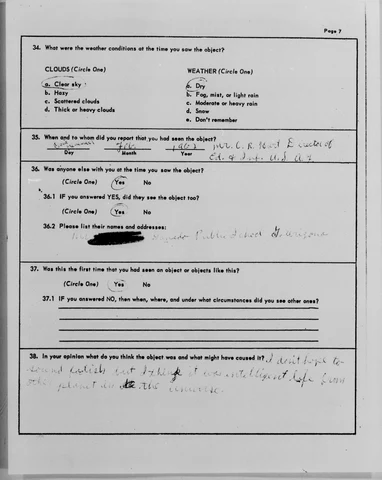 Page 7
34. What were the weather conditions at the time you saw the object?
CLOUDS (Circle One) WEATHER (Circle One)
a. Clear sky a. Dry
b. Hazy b. Fog, mist, or light rain
c. Scattered clouds c. Moderate or heavy rain
d. Thick or heavy clouds d. Snow
e. Don't remember
35. When and to whom did you report that you had seen the object?
Mr. C. R. Director of
Day Month Year
36. Was anyone else with you at the time you saw the object?
(Circle One) Yes No
36.1 IF you answered YES, did they see the object too?
(Circle One) Yes No
36.2 Please list their names and addresses:
Public School Arizona
37. Was this the first time that you had seen an object or objects like this?
(Circle One) Yes No
37.1 IF you answered NO, then when, where, and under what circumstances did you see other ones?
38. In your opinion what do you think the object was and what might have caused it? I don't hope to
sound but I think it was intelligent life from
other planet in the universe.